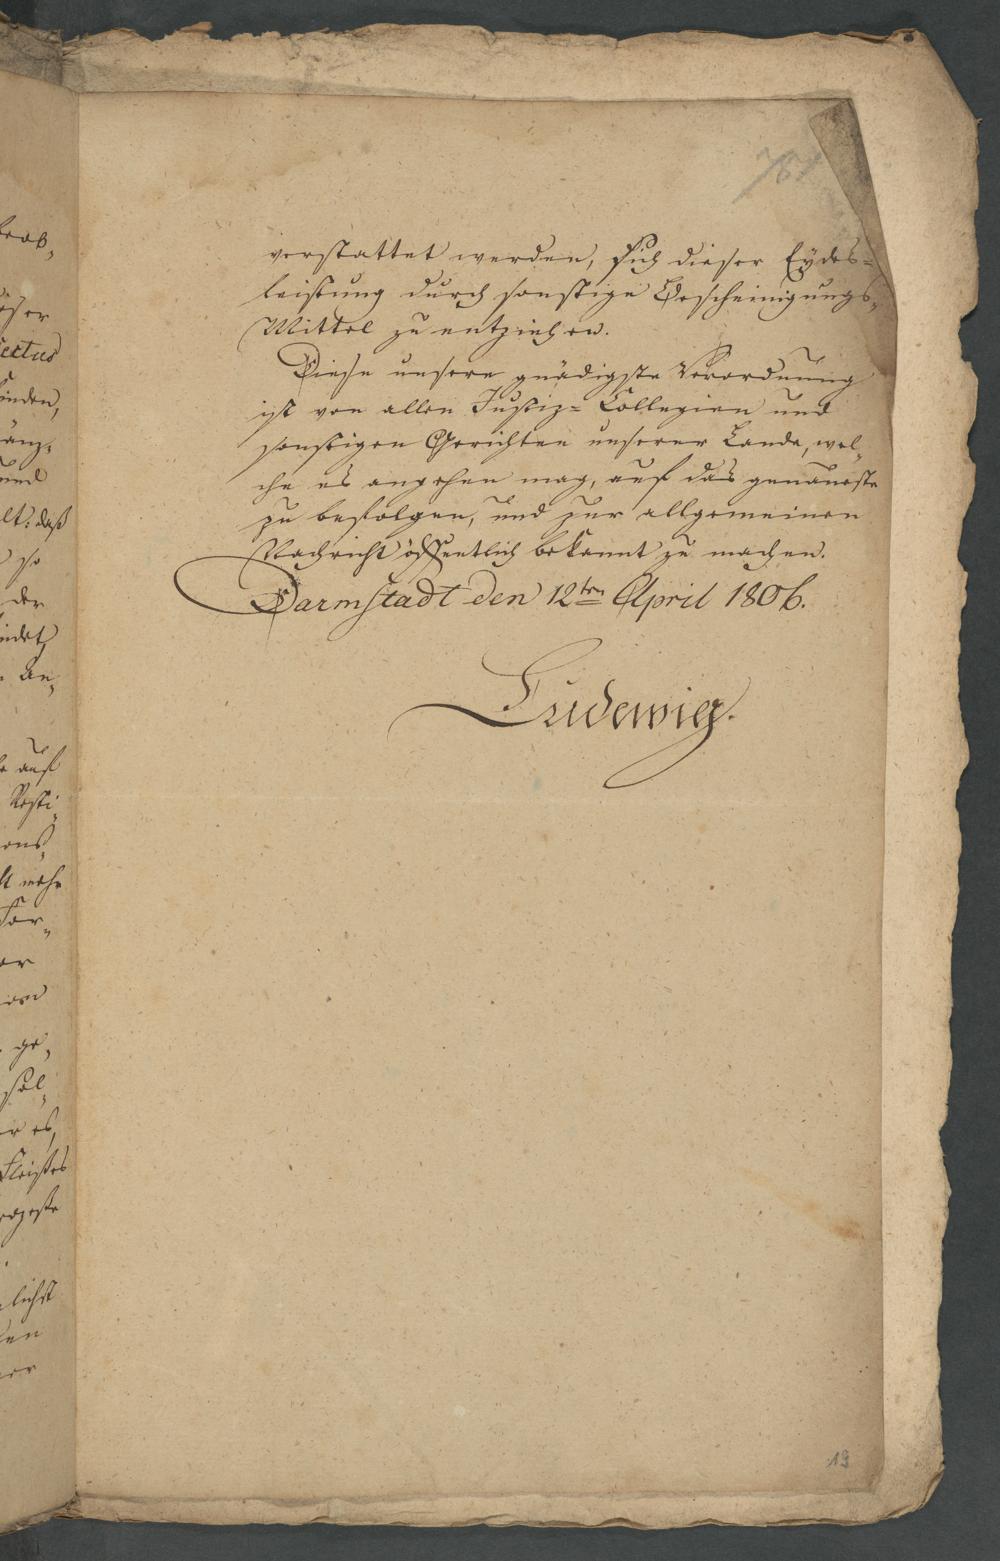 781
verstattet werden, sich dieser Eydes=
leistung durch sonstige Bescheinigungs-
Mittel zu entziehen.
Diese unsere gnädigste Verordnung
ist von allen Justiz= Collegien und
sonstigen Gerichten unserer Lande, wel-
che es angehen mag, auf das genaueste
zu befolgen, und zur allgemeinen
Nachricht öffentlich bekannt zu machen.
Darmstadt den 12ten April 1806.
Ludewig.
19